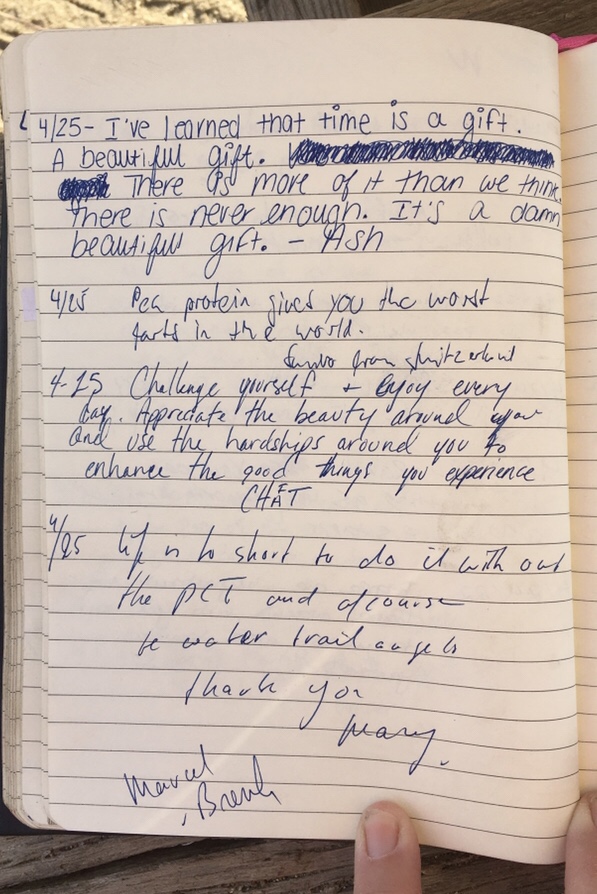 4/25- I've learned that time is a gift.
A beautiful gift.
There is more of it than we think,
there is never enough. It's a damn
beautiful gift. - Ash
4/25 Pea protein gives you the worst
farts in the world.
from Switzerland
4-25 Challenge yourself + enjoy every
day. Appreciate the beauty around you
and use the hardships around you to
enhance the good things you experience
4/25 life is to short to do it with out
the PCT and of course
te water trail angels
thank you
Marcel